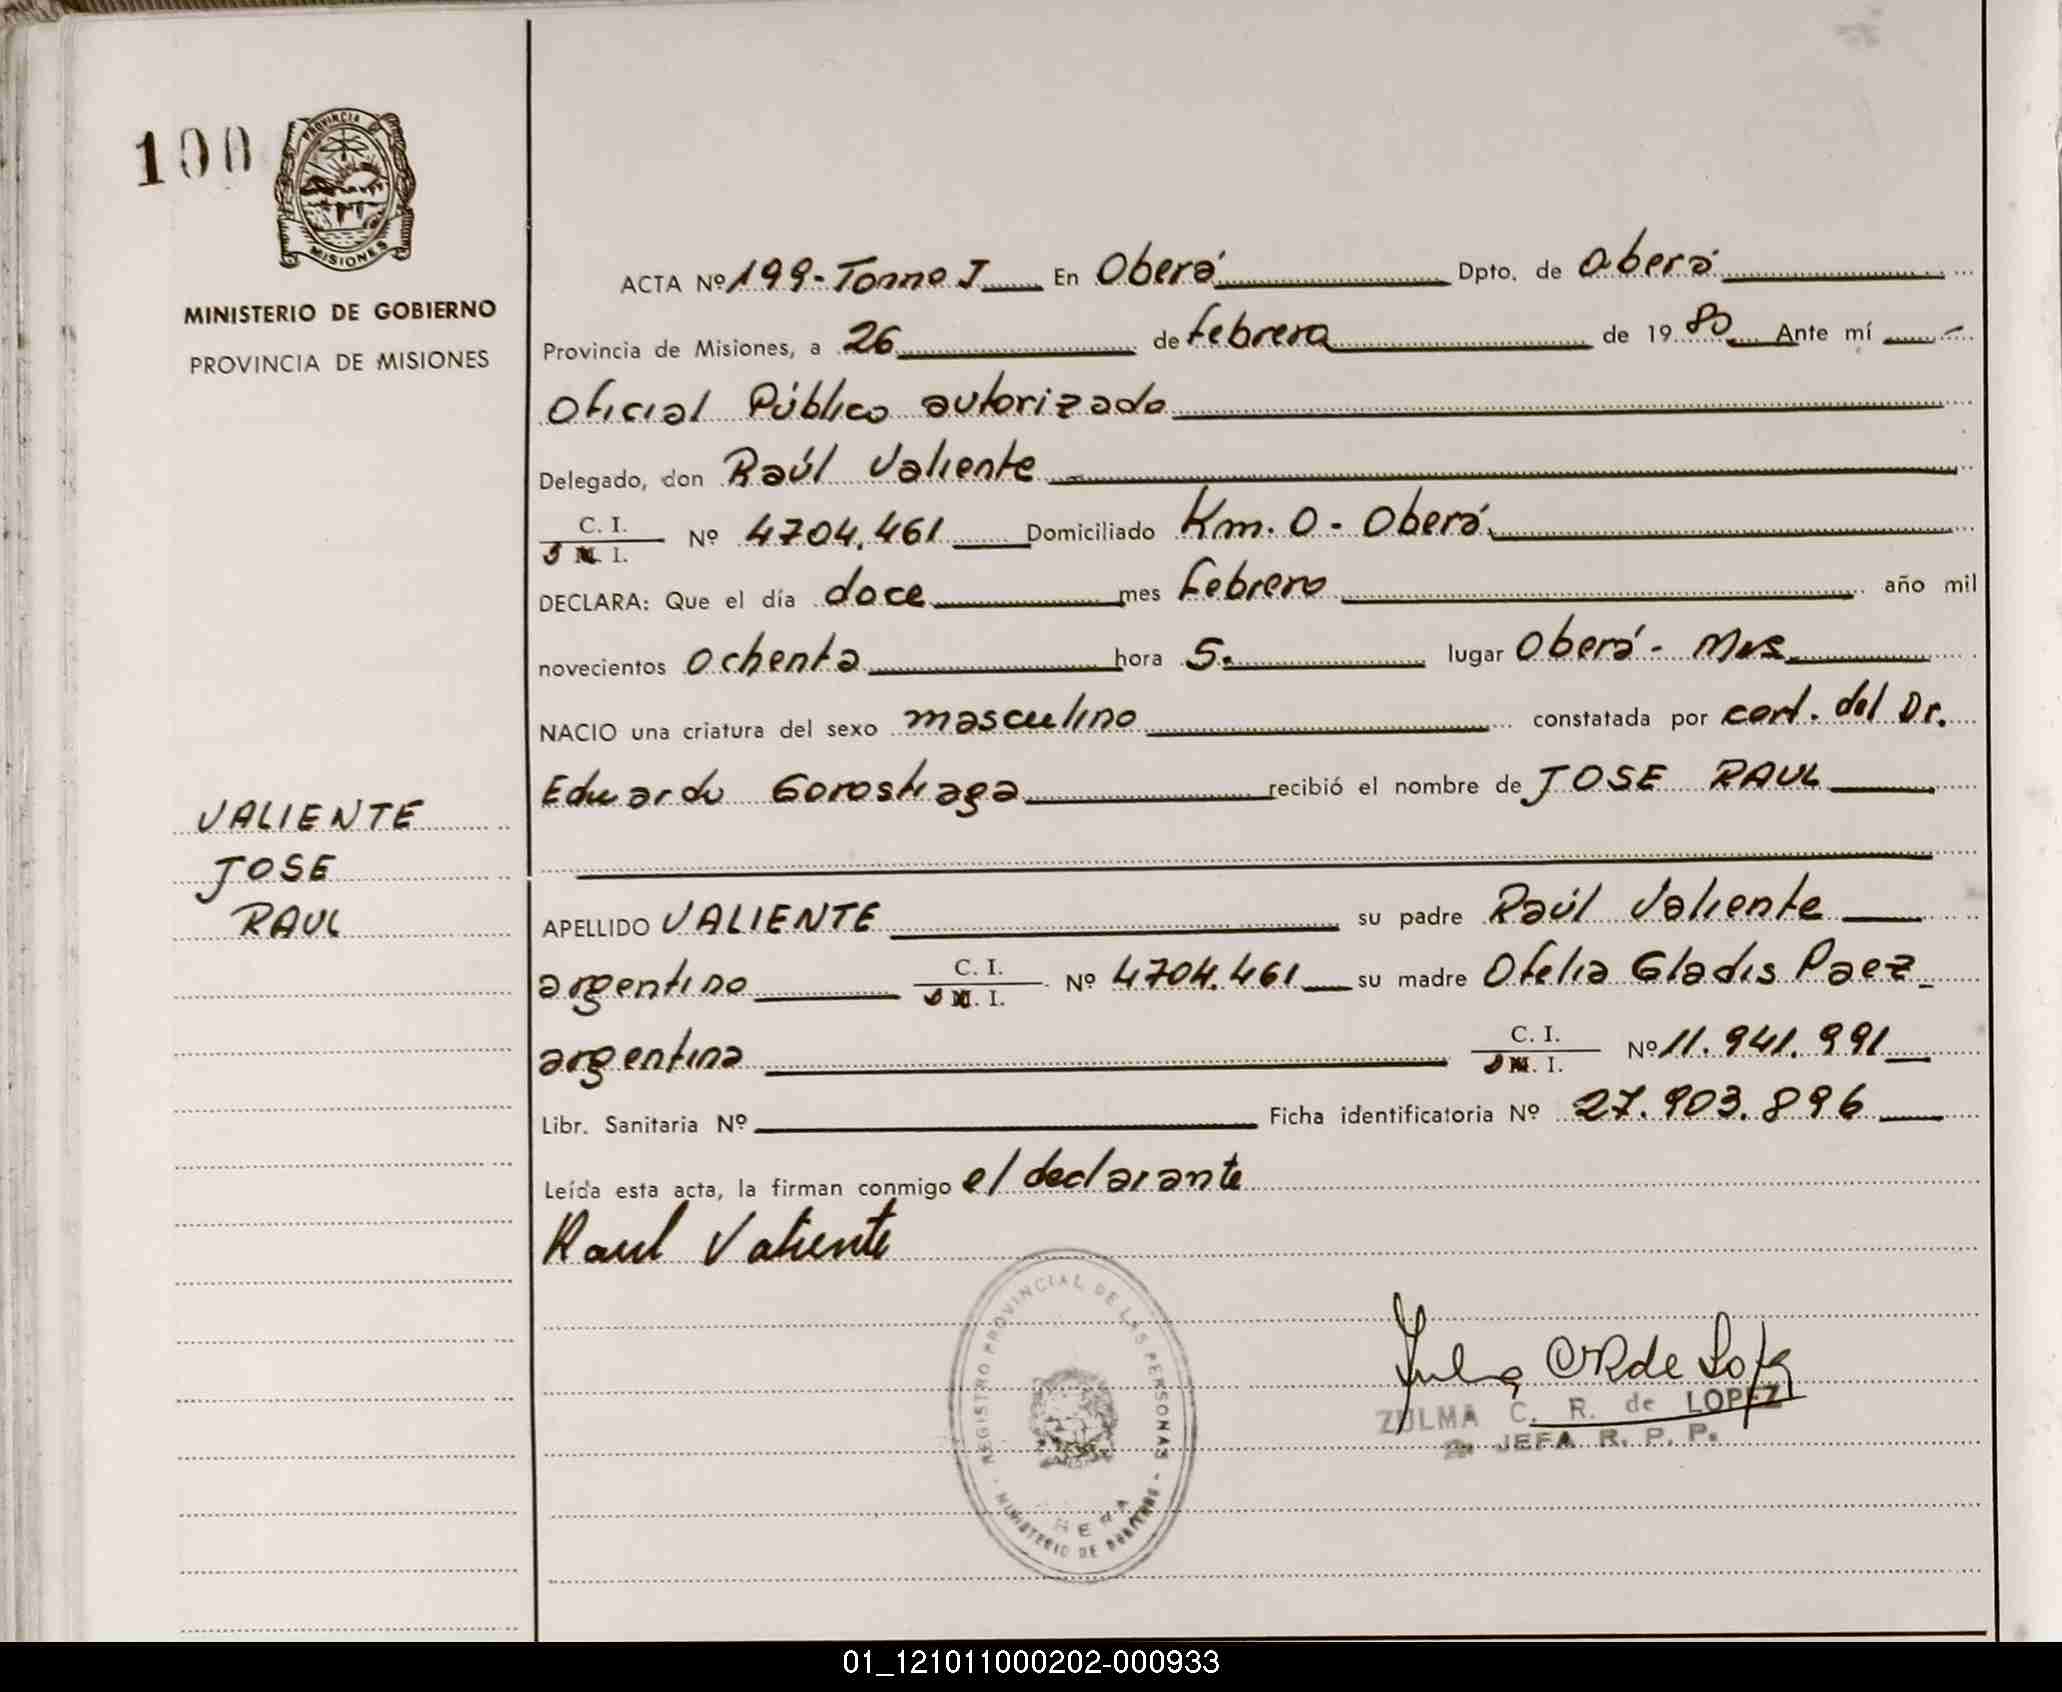 100
PROVINCIA DE
MISIONES
MINISTERIO DE GOBIERNO
PROVINCIA DE MISIONES
ACTA Nº 199-Tomo I En Oberá Dpto. de Oberá
Provincia de Misiones, a 26 de febrero de 1980 Ante mí
Oficial Público autorizado
Delegado, don Raúl Valiente
C. I.
D N. I. Nº 4704.461 Domiciliado Km. 0 - Oberá
DECLARA: Que el día doce mes febrero año mil
novecientos ochenta hora 5. lugar Oberá - Mnes
NACIO una criatura del sexo masculino constatada por cert. del Dr.
Eduardo Gorostiaga recibió el nombre de JOSE RAUL
VALIENTE
JOSE
RAUL
APELLIDO VALIENTE su padre Raúl Valiente
argentino C. I.
D N. I. Nº 4704.461 su madre Ofelia Gladis Paez
argentina C. I.
D N. I. Nº 11.941.991
Libr. Sanitaria Nº Ficha identificatoria Nº 27.903.896
Leída esta acta, la firman conmigo el declarante
Raul Valiente
REGISTRO PROVINCIAL DE LAS PERSONAS
MINISTERIO DE GOBIERNO
Zulma C R de Lopez
ZULMA C. R. de LOPEZ
2a JEFA R. P. P.
01_121011000202-000933